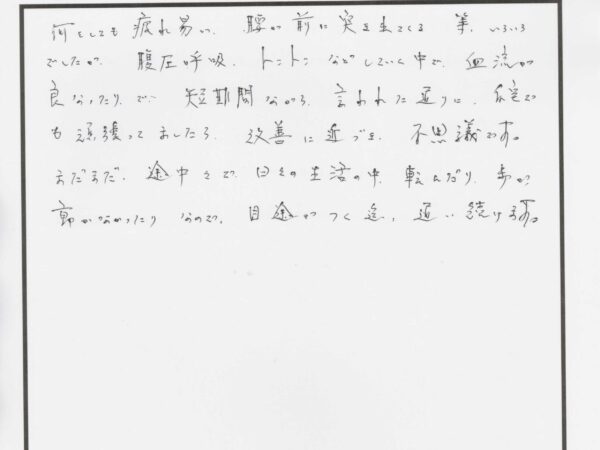 何をしても疲れ易い、腰が前に突き出てくる 等、いろいろ
でしたが、腹圧呼吸、トントンなどしていく中で、血流が
良くなったり、で、短期間ながら、言われた通りに、自宅で
も頑張ってましたら、改善に近づき、不思議です。
まだまだ、途中で、日々の生活の中、転んだり、歩が
動かなかったり なので、目途がつく迄、通い続けます。